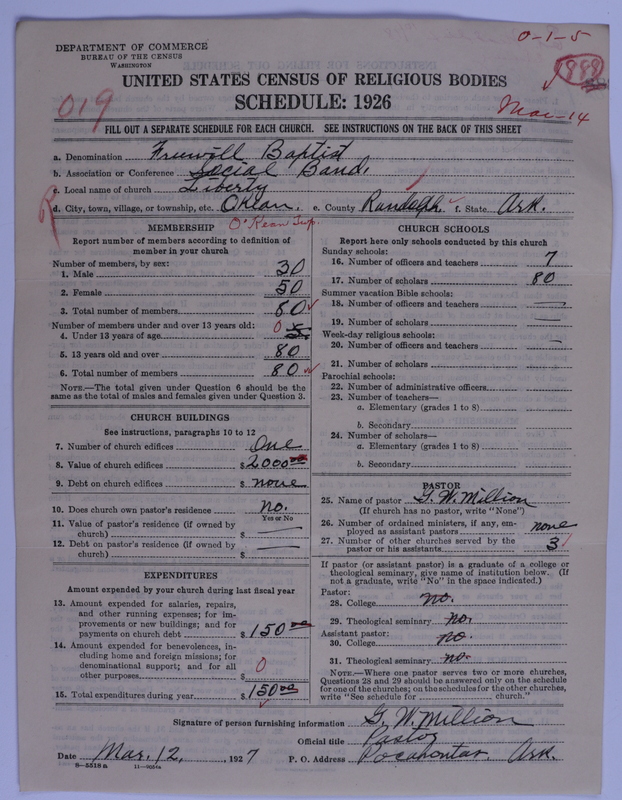 DEPARTMENT OF COMMERCE
BUREAU OF THE CENSUS
WASHINGTON
0-1-5
UNITED STATES CENSUS OF RELIGIOUS BODIES
SCHEDULE: 1926
019
Mar-14
FILL OUT A SEPARATE SCHEDULE FOR EACH CHURCH. SEE INSTRUCTIONS ON THE BACK OF THIS SHEET
a. Denomination Freewill Baptist
b. Association or Conference Social Band.
c. Local name of church Liberty
d. City, town, village, or township, etc. Okean. e. County Randolph. f. State Ark.
O'Kean Twp.
MEMBERSHIP
Report number of members according to definition of
member in your church
Number of members, by sex:
1. Male 30
2. Female 50
3. Total number of members 80
Number of members under and over 13 years old:
4. Under 13 years of age 0
5. 13 years old and over 80
6. Total number of members 80
NOTE.—The total given under Question 6 should be the
same as the total of males and females given under Question 3.
CHURCH BUILDINGS
See instructions, paragraphs 10 to 12
7. Number of church edifices One
8. Value of church edifices $2000.00
9. Debt on church edifices $none
10. Does church own pastor's residence no.
Yes or No
11. Value of pastor's residence (if owned by
church) $ —
12. Debt on pastor's residence (if owned by
church) $ —
EXPENDITURES
Amount expended by your church during last fiscal year
13. Amount expended for salaries, repairs,
and other running expenses; for im-
provements or new buildings; and for
payments on church debt $150.00
14. Amount expended for benevolences, in-
cluding home and foreign missions; for
denominational support; and for all
other purposes $ 0
15. Total expenditures during year $150.00
CHURCH SCHOOLS
Report here only schools conducted by this church
Sunday schools:
16. Number of officers and teachers 7
17. Number of scholars 80
Summer vacation Bible schools:
18. Number of officers and teachers —
19. Number of scholars —
Week-day religious schools:
20. Number of officers and teachers —
21. Number of scholars
Parochial schools:
22. Number of administrative officers
23. Number of teachers—
a. Elementary (grades 1 to 8)
b. Secondary
24. Number of scholars—
a. Elementary (grades 1 to 8)
b. Secondary
PASTOR
25. Name of pastor G. W. Million
(If church has no pastor, write "None")
26. Number of ordained ministers, if any, em-
ployed as assistant pastors none
27. Number of other churches served by the
pastor or his assistants 3
If pastor (or assistant pastor) is a graduate of a college or
theological seminary, give name of institution below. (If
not a graduate, write "No" in the space indicated.)
Pastor:
28. College no.
29. Theological seminary no.
Assistant pastor:
30. College no
31. Theological seminary no.
NOTE.—Where one pastor serves two or more churches,
Questions 28 and 29 should be answered only on the schedule
for one of the churches; on the schedules for the other churches,
write "See schedule for church."
Signature of person furnishing information G. W. Million
Official title Pastor
Date Mar. 12, 1927 P. O. Address Pocahontas. Ark.
8—5518a 11—9054a